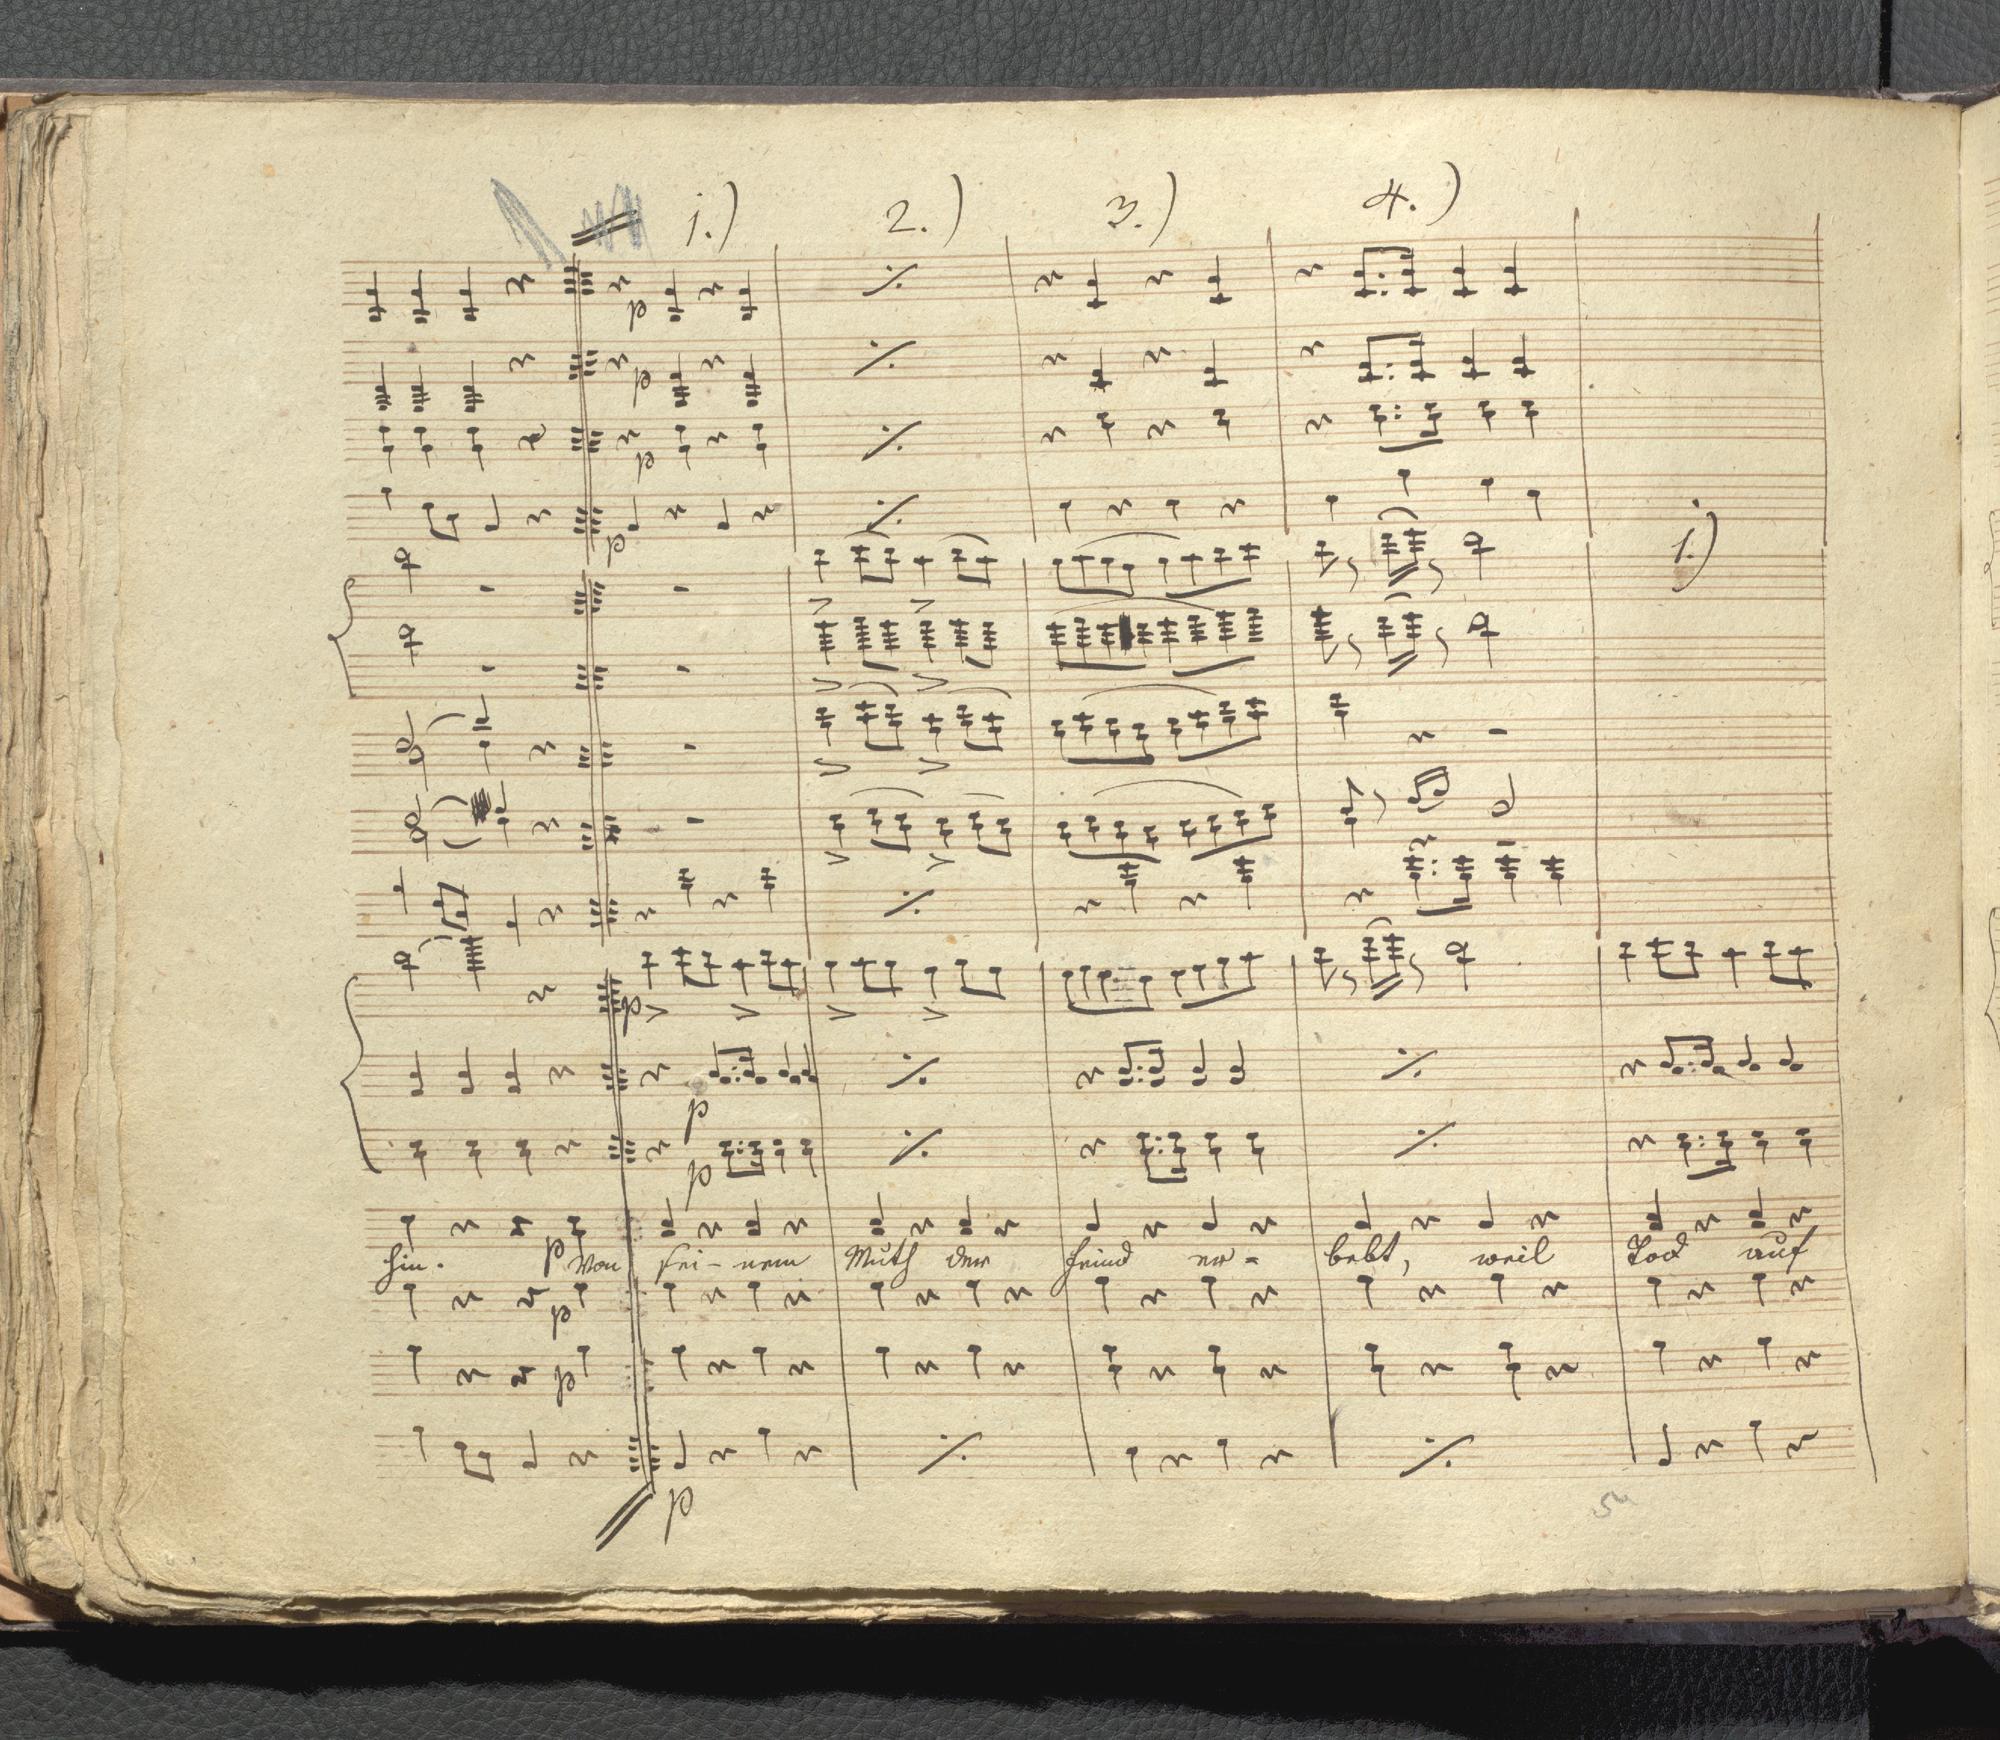 1.) 2.) 3.) 4.)
p
p
p
p
1.)
p
p
p
hin. p Von sei- nem Muth der Feind er- bebt, weil Tod auf
p
p
p